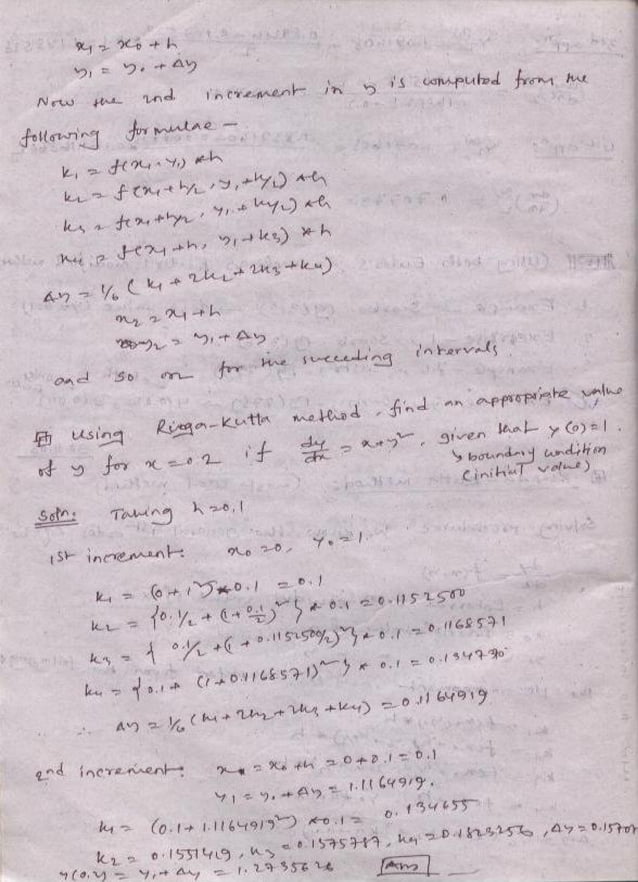 x₁ = x₀ + h
y₁ = y₀ + Δy
Now the 2nd increment in y is computed from the
following formulae —
k₁ = f(x₁, y₁) * h
k₂ = f(x₁ + h/2, y₁ + k₁/2) * h
k₃ = f(x₁ + h/2, y₁ + k₂/2) * h
k₄ = f(x₁ + h, y₁ + k₃) * h
Δy = 1/6 (k₁ + 2k₂ + 2k₃ + k₄)
x₂ = x₁ + h
y₂ = y₁ + Δy
and so on for the succeeding intervals.
Using Runga-Kutta method, find an appropriate value
of y for x = 0.2 if dy/dx = x + y², given that y(0) = 1.
↳ boundary condition
(initial value)
Soln: Taking h = 0.1
1st increment: x₀ = 0, y₀ = 1.
k₁ = (0 + 1²) * 0.1 = 0.1
k₂ = {0.1/2 + (1 + 0.1/2)²} * 0.1 = 0.1152500
k₃ = {0.1/2 + (1 + 0.1152500/2)²} * 0.1 = 0.1168571
k₄ = {0.1 + (1 + 0.1168571)²} * 0.1 = 0.134730
Δy = 1/6 (k₁ + 2k₂ + 2k₃ + k₄) = 0.1164919
2nd increment: x₁ = x₀ + h = 0 + 0.1 = 0.1
y₁ = y₀ + Δy = 1.1164919.
k₁ = (0.1 + 1.1164919²) * 0.1 = 0.134655
k₂ = 0.1551419, k₃ = 0.1575787, k₄ = 0.1823256, Δy = 0.15707
y(0.2) = y₁ + Δy = 1.2735626 Ans